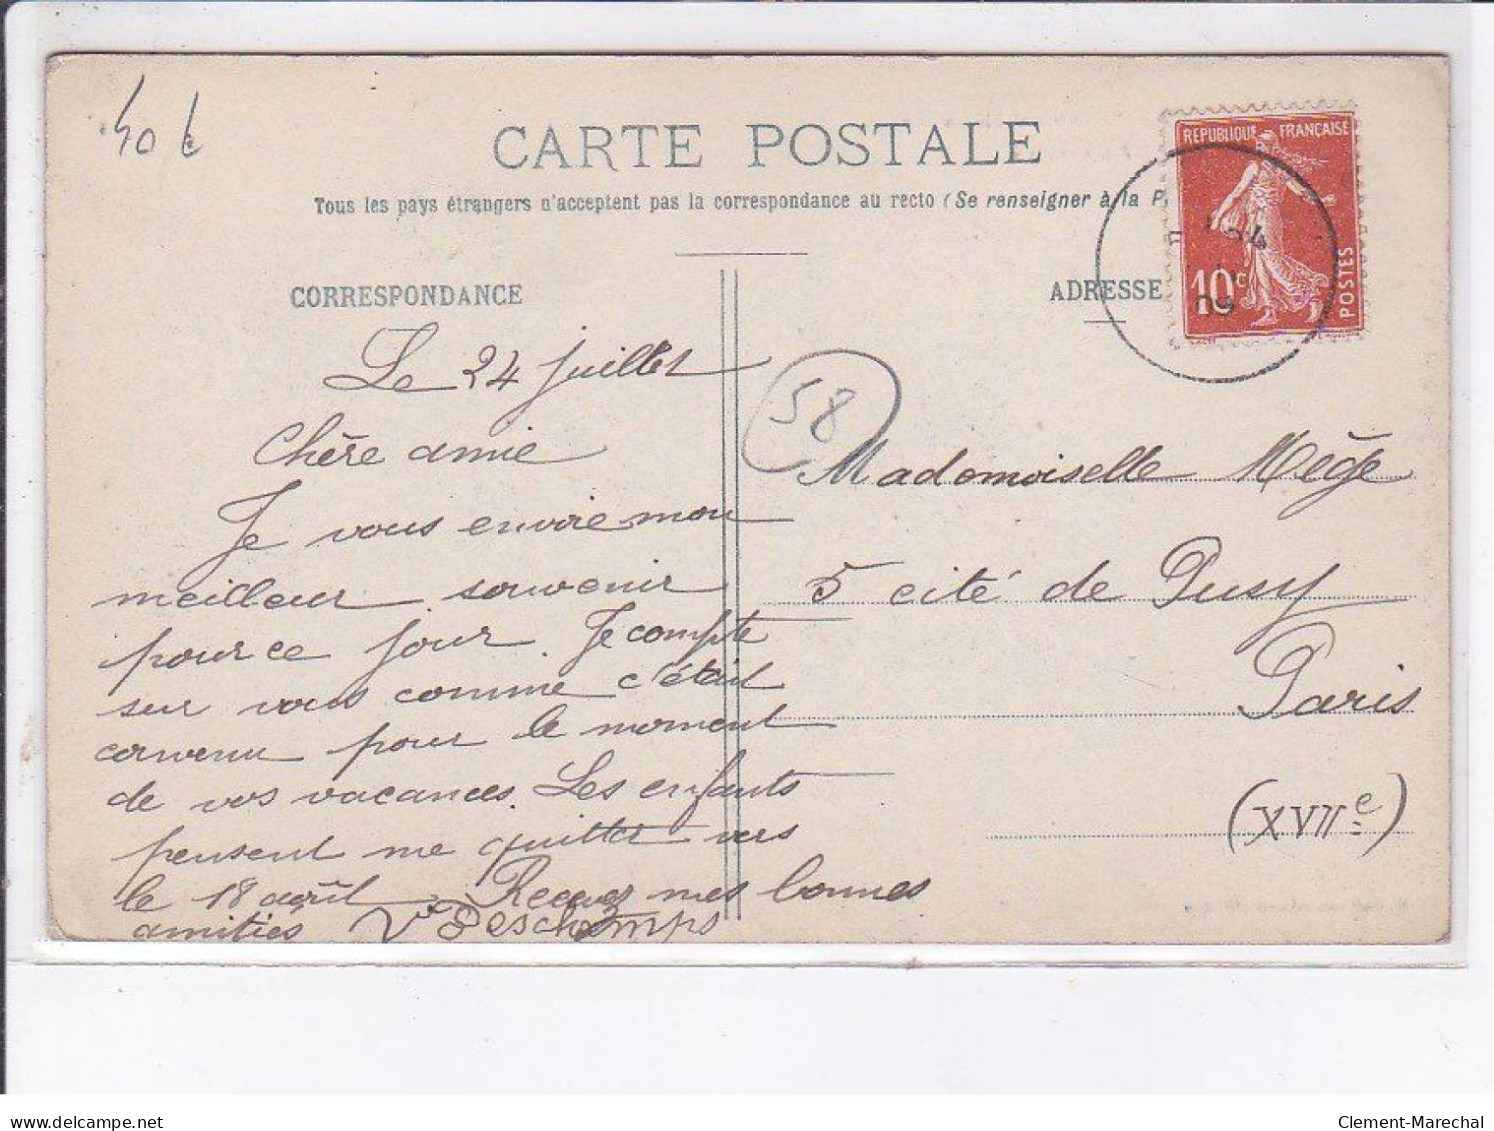 40 t
CARTE POSTALE
Tous les pays étrangers n'acceptent pas la correspondance au recto (Se renseigner à la P
REPUBLIQUE FRANÇAISE
10c
POSTES
09
CORRESPONDANCE
ADRESSE
Le 24 juillet
Chère amie
Je vous envoie mon
meilleur souvenir
pour ce jour. Je compte
sur vous comme c'était
convenu pour le moment
de vos vacances. Les enfants
pensent me quitter vers
le 18 août. Recevez mes bonnes
amitiés Vve Deschamps
58
Mademoiselle Mège
5 cité de Pusy
Paris
(XVIIe)
Clement-Marechal